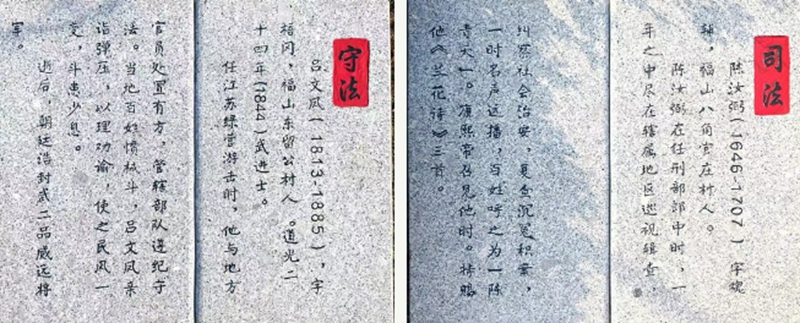 司法
陈汝弼(1646-1707)字槐
,福山八角官庄村人。
陈汝弼在任刑部郎中时,一
年之中尽在辖属地区巡视缉查,
纠察社会治安,复查沉冤积案,
一时名声远播,百姓呼之为“陈
青天”。康熙帝召见他时。特赐
他《兰花诗》三首。
守法
吕文凤(1813-1885),字
梧冈,福山东留公村人。道光二
十四年(1844)武进士。
任江苏绿营游击时,他与地方
官员处置有方,管辖部队遵纪守
法。当地百姓惯械斗,吕文凤亲
诣弹压,以理劝谕,使之民风一
变,斗患少息。
逝后,朝廷诰封贰二品威远将
军。